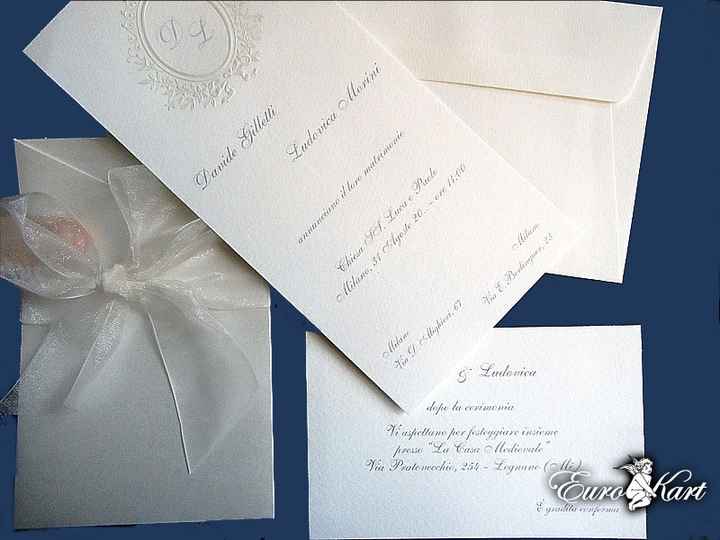 D L
Davide Gilletti
Ludovica Morini
annunciano il loro matrimonio
Chiesa SS. Luca e Paolo
Milano, 31 Agosto 20.. - ore 11:00
Milano
Via G. Alighieri, 67
Milano
Via E. Berlinguer, 23
& Ludovica
dopo la cerimonia
Vi aspettano per festeggiare insieme
presso "La Casa Medievale"
Via Pratovecchio, 254 - Legnano (Mi)
È gradita conferma
Euro Kart